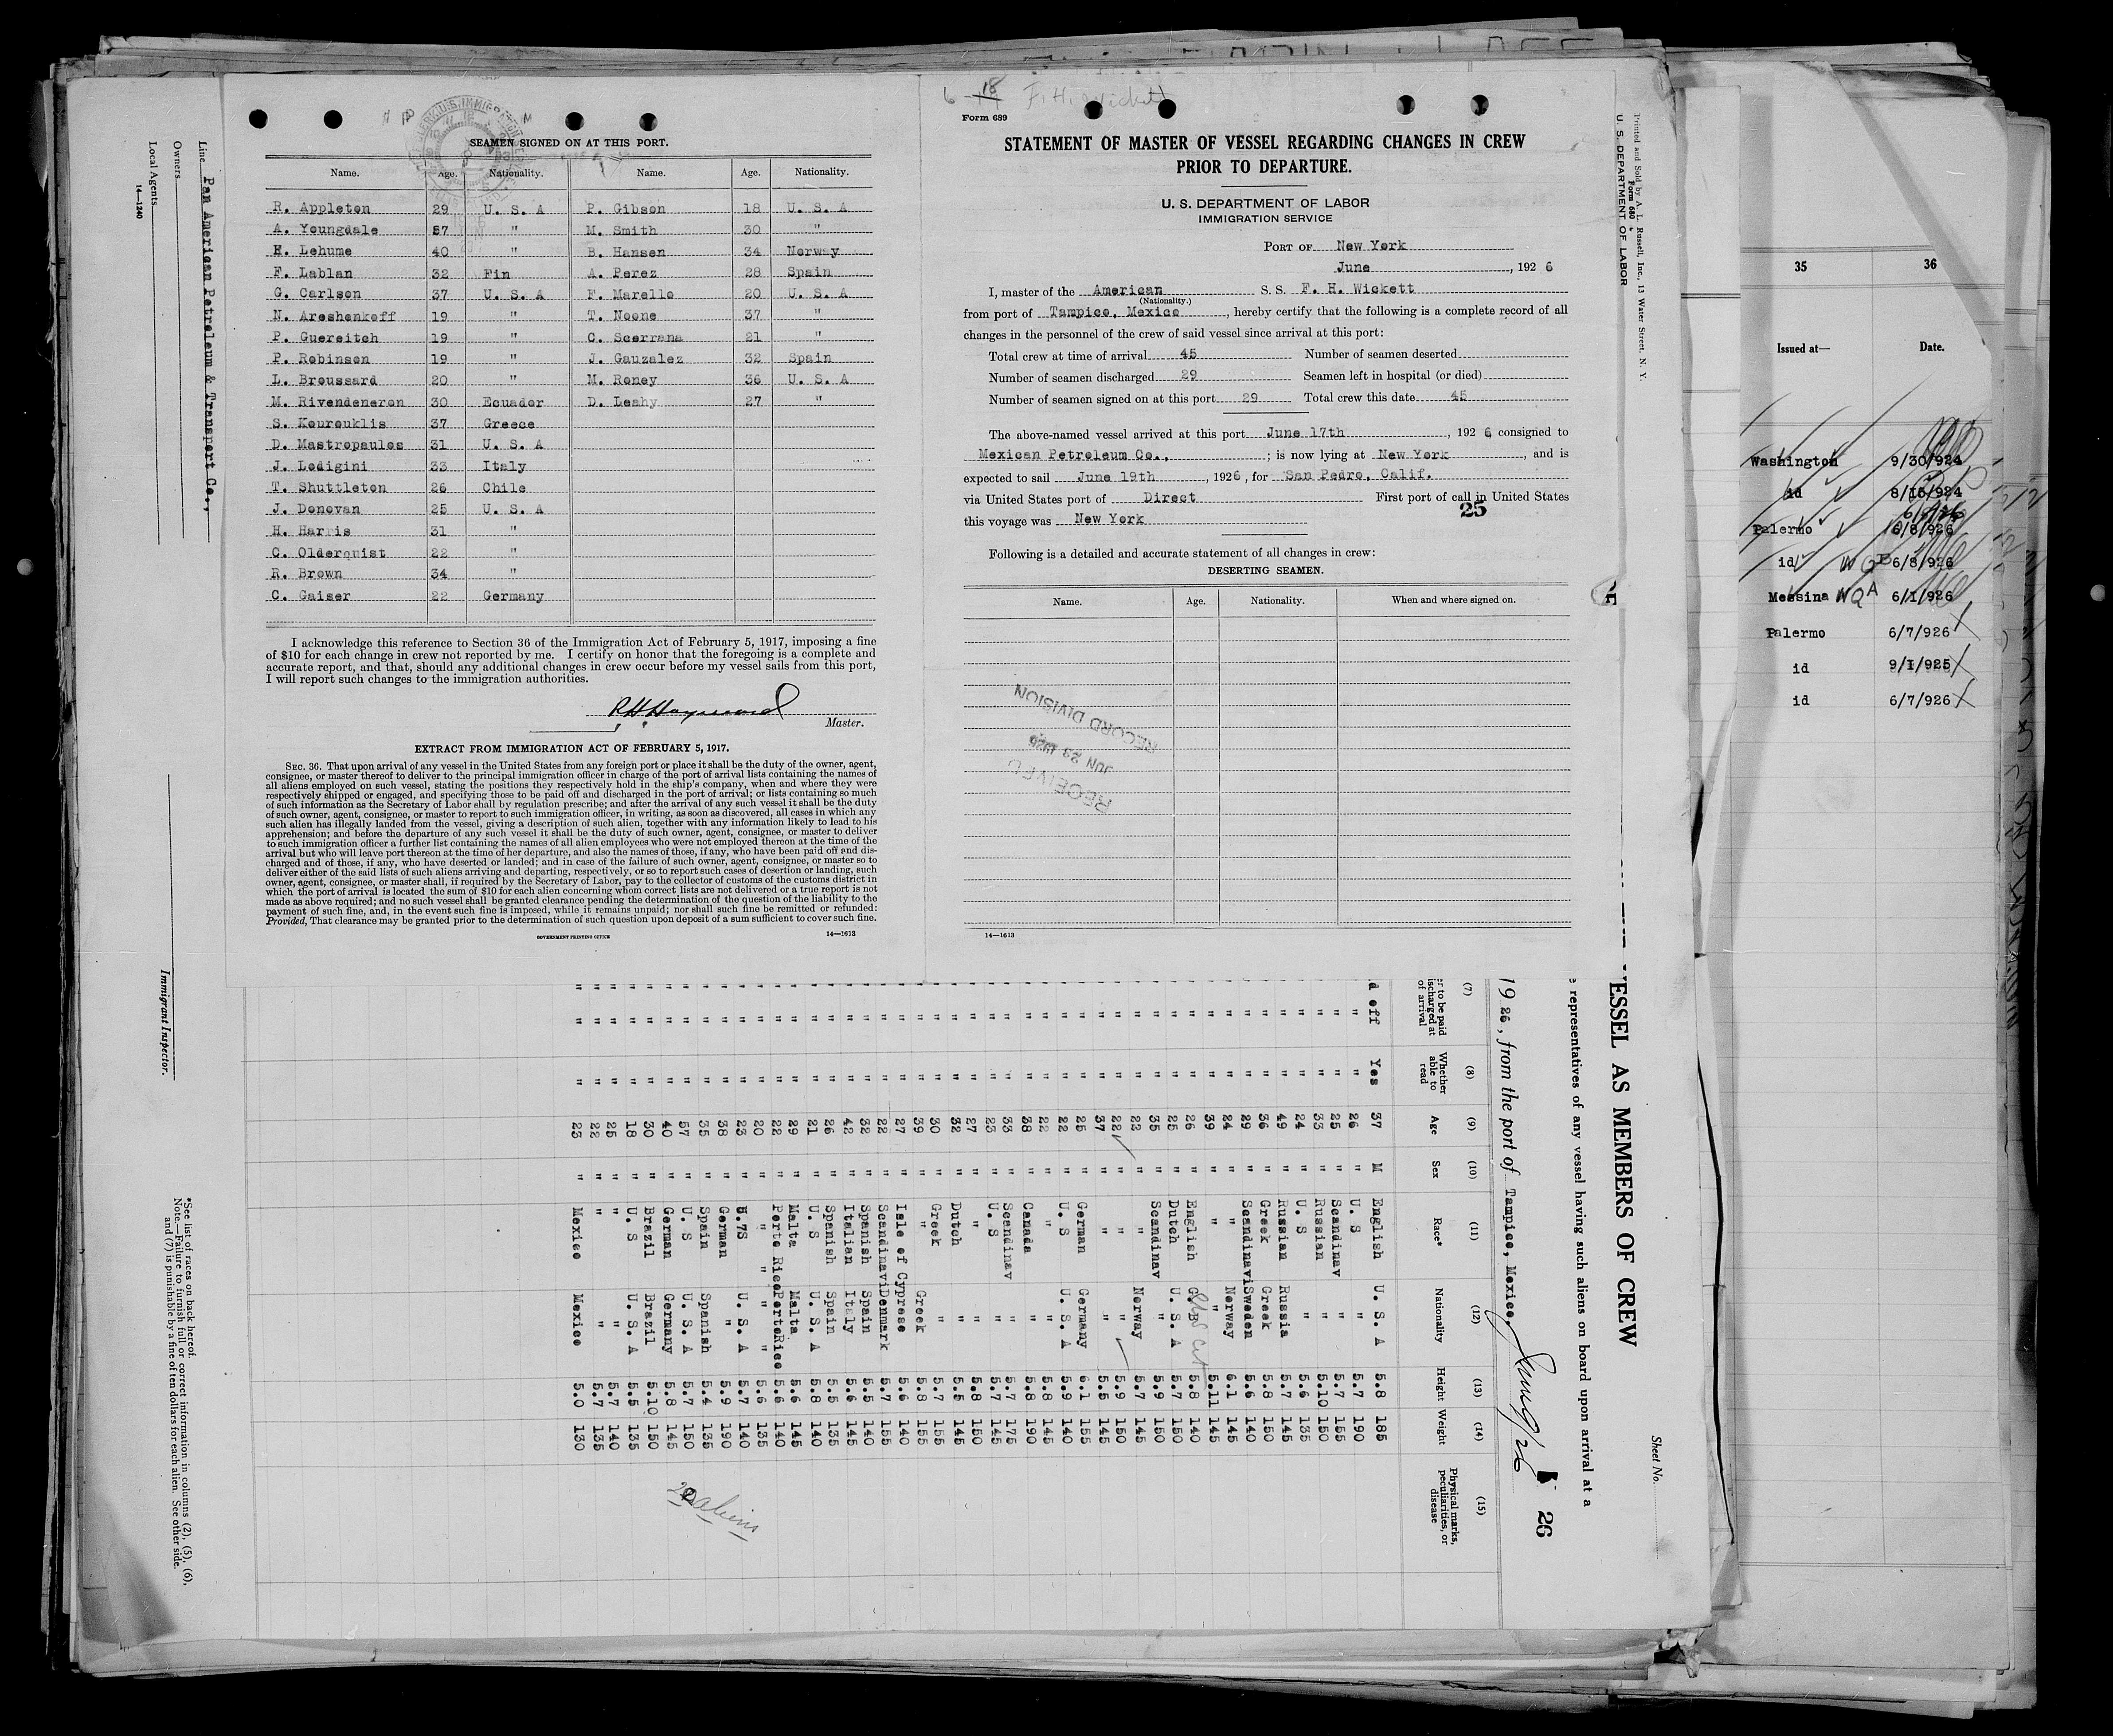 SEAMEN SIGNED ON AT THIS PORT.
Name. Age. Nationality. Name. Age. Nationality.
R. Appleton 29 U. S. A P. Gibson 18 U. S. A
A. Youngdale 57 " M. Smith 30 "
E. Lehume 40 " B. Hansen 34 Norway
F. Lablan 32 Fin A. Perez 28 Spain
G. Carlson 37 U. S. A F. Marello 20 U. S. A
N. Areshenkoff 19 " T. Noone 37 "
P. Guereitch 19 " C. Scerrana 21 "
P. Robinson 19 " J. Gauzalez 32 Spain
L. Broussard 20 " M. Roney 36 U. S. A
M. Rivendeneron 30 Ecuador D. Leahy 27 "
S. Kourouklis 37 Greece
D. Mastropaulos 31 U. S. A
J. Lodigini 33 Italy
T. Shuttleton 26 Chile
J. Donovan 25 U. S. A
H. Harris 31 "
C. Olderquist 22 "
R. Brown 34 "
C. Gaiser 22 Germany
I acknowledge this reference to Section 36 of the Immigration Act of February 5, 1917, imposing a fine
of $10 for each change in crew not reported by me. I certify on honor that the foregoing is a complete and
accurate report, and that, should any additional changes in crew occur before my vessel sails from this port,
I will report such changes to the immigration authorities.
R. H. Hayward
Master.
EXTRACT FROM IMMIGRATION ACT OF FEBRUARY 5, 1917.
SEC. 36. That upon arrival of any vessel in the United States from any foreign port or place it shall be the duty of the owner, agent,
consignee, or master thereof to deliver to the principal immigration officer in charge of the port of arrival lists containing the names of
all aliens employed on such vessel, stating the positions they respectively hold in the ship's company, when and where they were
respectively shipped or engaged, and specifying those to be paid off and discharged in the port of arrival; or lists containing so much
of such information as the Secretary of Labor shall by regulation prescribe; and after the arrival of any such vessel it shall be the duty
of such owner, agent, consignee, or master to report to such immigration officer, in writing, as soon as discovered, all cases in which any
such alien has illegally landed from the vessel, giving a description of such alien, together with any information likely to lead to his
apprehension; and before the departure of any such vessel it shall be the duty of such owner, agent, consignee, or master to deliver
to such immigration officer a further list containing the names of all alien employees who were not employed thereon at the time of the
arrival but who will leave port thereon at the time of her departure, and also the names of those, if any, who have been paid off and dis-
charged and of those, if any, who have deserted or landed; and in case of the failure of such owner, agent, consignee, or master so to
deliver either of the said lists of such aliens arriving and departing, respectively, or so to report such cases of desertion or landing, such
owner, agent, consignee, or master shall, if required by the Secretary of Labor, pay to the collector of customs of the customs district in
which the port of arrival is located the sum of $10 for each alien concerning whom correct lists are not delivered or a true report is not
made as above required; and no such vessel shall be granted clearance pending the determination of the question of the liability to the
payment of such fine, and, in the event such fine is imposed, while it remains unpaid; nor shall such fine be remitted or refunded:
Provided, That clearance may be granted prior to the determination of such question upon deposit of a sum sufficient to cover such fine.
GOVERNMENT PRINTING OFFICE 14—1613
F. H. Wickett
Form 689
STATEMENT OF MASTER OF VESSEL REGARDING CHANGES IN CREW
PRIOR TO DEPARTURE.
U. S. DEPARTMENT OF LABOR
IMMIGRATION SERVICE
PORT OF New York
June , 192 6
I, master of the American S. S. F. H. Wickett
(Nationality.)
from port of Tampico, Mexico , hereby certify that the following is a complete record of all
changes in the personnel of the crew of said vessel since arrival at this port:
Total crew at time of arrival 45 Number of seamen deserted
Number of seamen discharged 29 Seamen left in hospital (or died)
Number of seamen signed on at this port 29 Total crew this date 45
The above-named vessel arrived at this port June 17th , 192 6 consigned to
Mexican Petroleum Co., ; is now lying at New York , and is
expected to sail June 19th , 1926 , for San Pedro, Calif.
via United States port of Direct First port of call in United States
25
this voyage was New York
Following is a detailed and accurate statement of all changes in crew:
DESERTING SEAMEN.
Name. Age. Nationality. When and where signed on.
RECEIVED
JUN 23 1926
RECORD DIVISION
14—1613
Line Pan American Petroleum & Transport Co.,
Owners
Local Agents
14—1240
Immigrant Inspector.
*See list of races on back hereof.
Note.—Failure to furnish full or correct information in columns (2), (5), (6),
and (7) is punishable by a fine of ten dollars for each alien. See other side.
Printed and Sold by A. L. Russell, Inc., 13 Water Street, N. Y.
Form 680
U. S. DEPARTMENT OF LABOR
Sheet No.
VESSEL AS MEMBERS OF CREW
representatives of any vessel having such aliens on board upon arrival at a
26
19 26, from the port of Tampico, Mexico.
(7) (8) (9) (10) (11) (12) (13) (14) (15)
Whether able to read Age Sex Race* Nationality Height Weight Physical marks, peculiarities, or disease
d off Yes 37 M English U. S. A 5.8 185
" " 26 " U. S " 5.7 190
" " 25 " Scandinav " 5.7 155
" " 33 " Russian " 5.10 150
" " 24 " U. S " 5.6 135
" " 49 " Russian Russia 5.7 145
" " 36 " Greek Greek 5.8 150
" " 29 " Scandinavi Sweden 5.6 140
" " 24 " " Norway 6.1 145
" " 39 " " " 5.11 145
" " 26 " English G. B 5.8 140
" " 25 " Dutch U. S. A 5.7 150
" " 35 " Scandinav " 5.9 150
" " 22 " " Norway 5.7 140
" " 22 " " " 5.9 150
" " 37 " " " 5.5 145
" " 25 " German Germany 6.1 155
" " 22 " U. S U. S. A 5.9 140
" " 22 " " " 5.8 145
" " 38 " Canada " 5.8 190
" " 33 " Scandinav " 5.7 175
" " 23 " U. S " 5.7 145
" " 27 " " " 5.8 150
" " 32 " Dutch " 5.5 145
" " 30 " Greek " 5.7 155
" " 39 " " Greek 5.8 155
" " 27 " Isle of Cyprese 5.6 140
" " 22 " Scandinavi Denmark 5.7 155
" " 32 " Spanish Spain 5.5 140
" " 42 " Italian Italy 5.6 145
" " 26 " Spanish Spain 5.5 135
" " 21 " U. S U. S. A 5.8 140
" " 29 " Malta Malta 5.6 145
" " 22 " Porto Rico Porto Rico 5.6 140
" " 20 " " " " " 5.6 135
" " 23 " U. S. A 5.7 140
" " 38 " German " 5.9 190
" " 35 " Spain Spanish 5.4 135
" " 57 " U. S U. S. A 5.7 150
" " 40 " German Germany 5.8 145
" " 30 " Brazil Brazil 5.10 150
" " 18 " U. S U. S. A 5.5 135
" " 25 " " " 5.7 140
" " 22 " " " 5.7 135
" " 23 " Mexico Mexico 5.0 130
aliens
35 36
Issued at— Date.
Washington 9/30/924
id 8/15/924
Palermo 6/8/926
id 6/8/926
Messina 6/1/926
Palermo 6/7/926
id 9/1/925
id 6/7/926